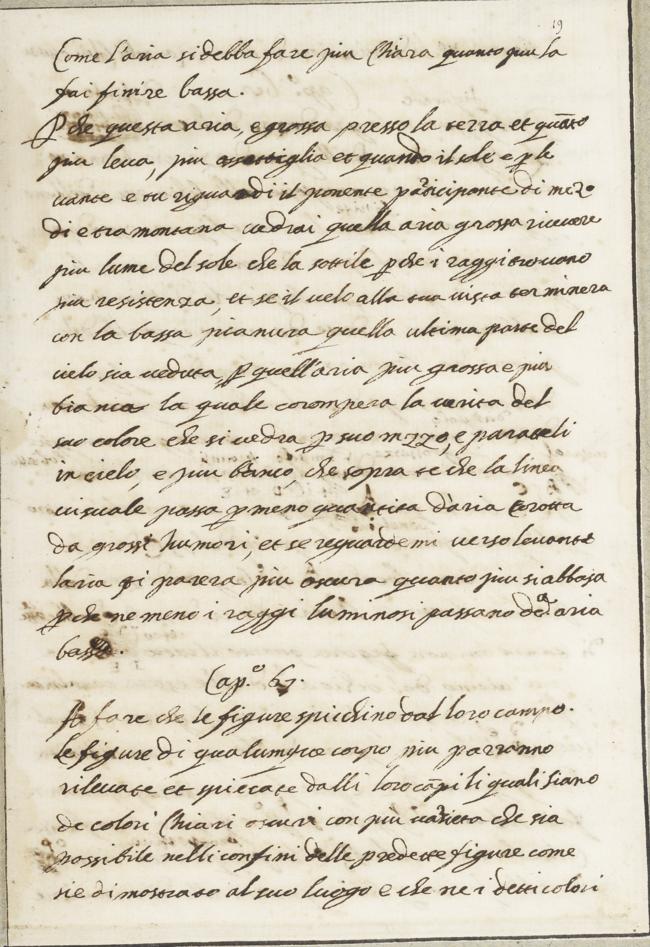 19
Come l'aria si debba fare piu Chiara quanto piu la
fai finire bassa.
P che questa aria, e grossa presso la terra et quãto
piu leva, piu assottiglia et quando il sole e p le
vante e tu riguardi il ponente participante di mezo
di e tramontana vedrai quella aria grossa ricevere
piu lume del sole che la sottile p che i raggi trovano
piu resistenza, et se il cielo alla tua vista terminera
con la bassa pianura quella ultima parte del
cielo sia veduta p quell'aria piu grossa e piu
bianca la quale corompera la verita del
suo colore che si vedra p suo mezzo, e paratteli
in cielo e piu bianco, che sopra te che la linea
visuale passa p meno quantita d'aria corotta
da grossi humori, et se reguarderai verso levante
l'aria ti parera piu oscura quanto piu si abbassa
p che ne meno i raggi luminosi passano da aria
bassa.
Cap.º 67.
A fare che le figure spicchino dal loro campo.
le figure di qualumque corpo piu parranno
rilevate et spiccate dalli loro cãpi li quali siano
de colori Chiari oscuri con piu varieta che sia
possibile nelli confini delle predette figure come
sie dimostrato al suo luogo e che ne i detti colori